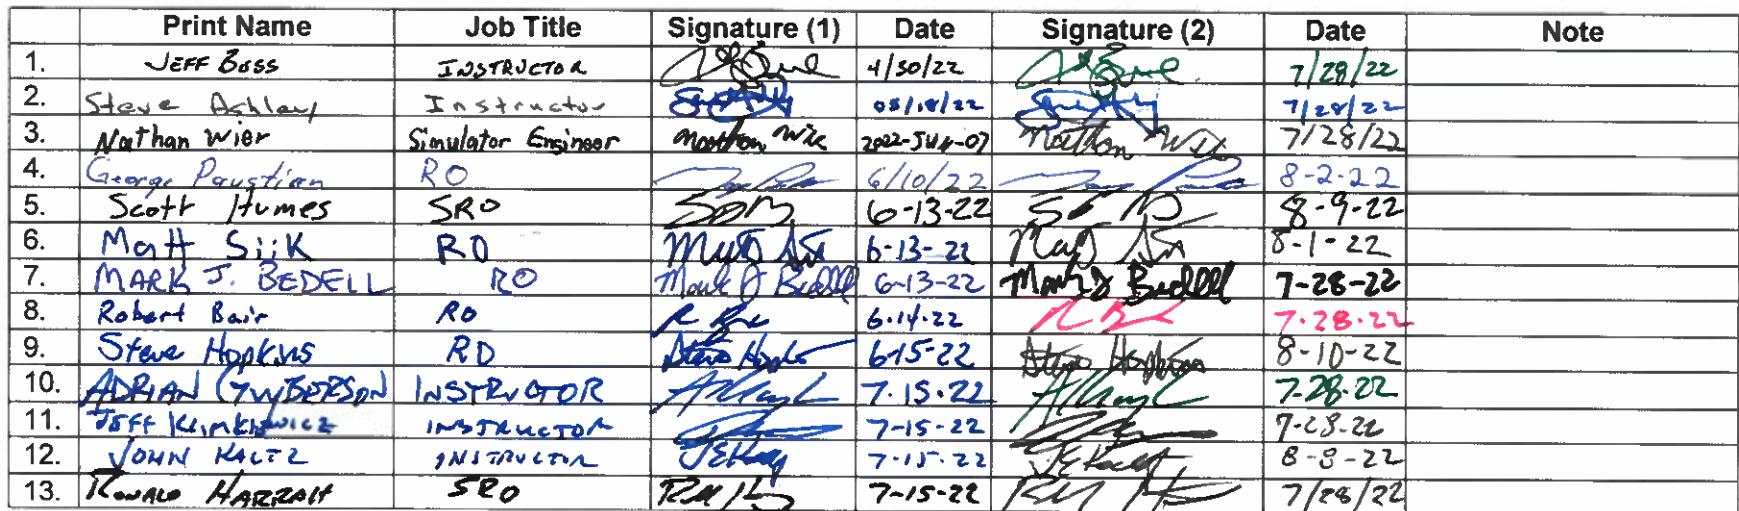 Print Name Job Title Signature (1) Date Signature (2) Date Note
1. JEFF BOSS INSTRUCTOR 4/30/22 7/28/22
2. Steve Ashley Instructor 05/18/22 7/28/22
3. Nathan Wier Simulator Engineer Nathan Wier 2022-JUN-07 Nathan Wier 7/28/22
4. George Paustian RO 6/10/22 8-2-22
5. Scott Humes SRO 6-13-22 8-9-22
6. Matt Siik RO 6-13-22 8-1-22
7. MARK J. BEDELL RO Mark J Bedell 6-13-22 Mark J Bedell 7-28-22
8. Robert Bair RO 6.14.22 7.28.22
9. Steve Hopkins RO 6-15-22 Steve Hopkins 8-10-22
10. ADRIAN INSTRUCTOR 7.15.22 7.28.22
11. JEFF INSTRUCTOR 7-15-22 7-28-22
12. JOHN KALTZ INSTRUCTOR 7.15.22 8-8-22
13. RONALD SRO 7-15-22 7/28/22